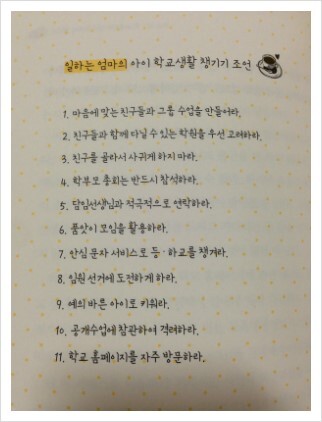 일하는 엄마의 아이 학교생활 챙기기 조언
1. 마음에 맞는 친구들과 그룹 수업을 만들어라.
2. 친구들과 함께 다닐 수 있는 학원을 우선 고려하라.
3. 친구를 골라서 사귀게 하지 마라.
4. 학부모 총회는 반드시 참석하라.
5. 담임선생님과 적극적으로 연락하라.
6. 품앗이 모임을 활용하라.
7. 안심 문자 서비스로 등·하교를 챙겨라.
8. 임원 선거에 도전하게 하라.
9. 예의 바른 아이로 키워라.
10. 공개수업에 참관하여 격려하라.
11. 학교 홈페이지를 자주 방문하라.